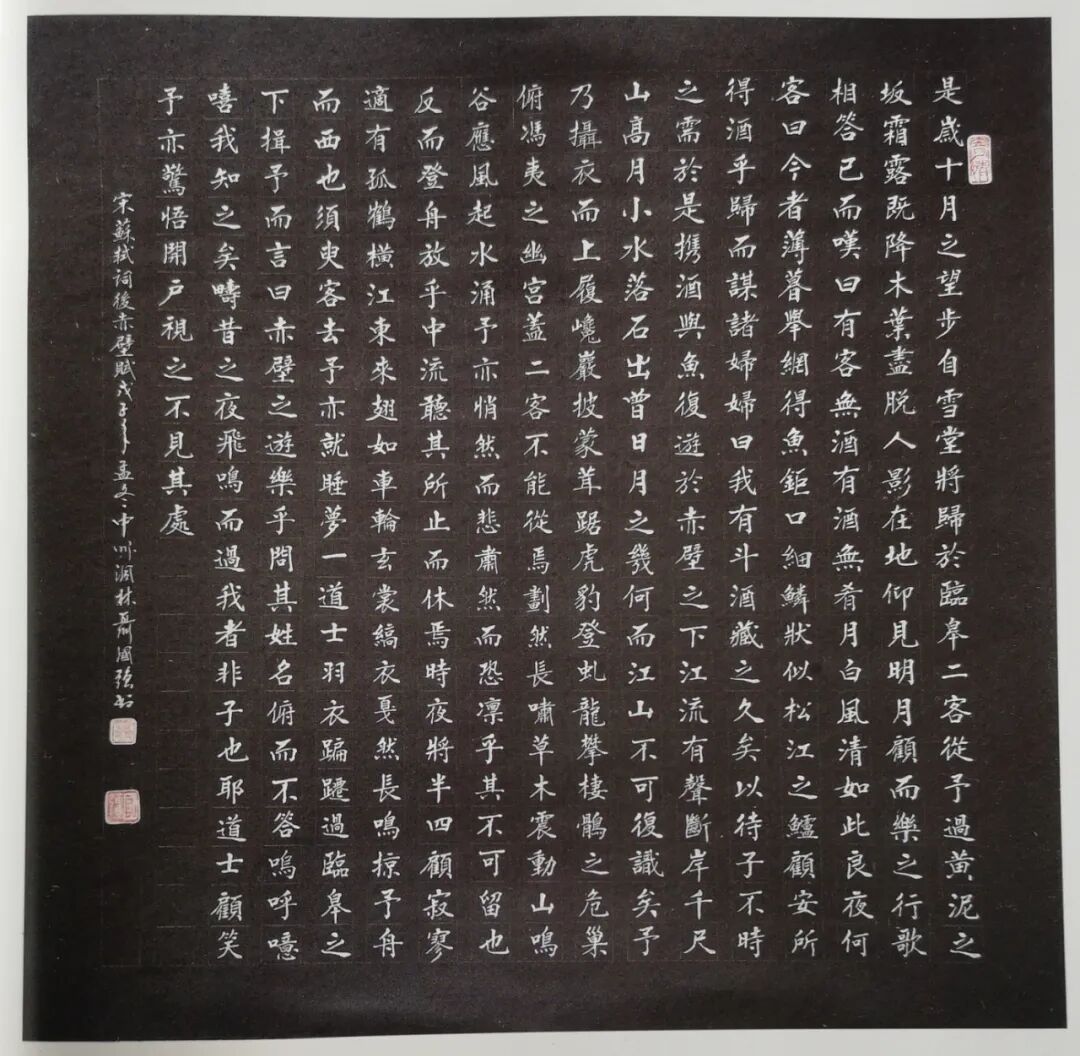 是歲十月之望步自雪堂將歸於臨皋二客從予過黃泥之
坂霜露既降木葉盡脫人影在地仰見明月顧而樂之行歌
相答已而嘆曰有客無酒有酒無肴月白風清如此良夜何
客曰今者薄暮舉網得魚鉅口細鱗狀似松江之鱸顧安所
得酒乎歸而謀諸婦婦曰我有斗酒藏之久矣以待子不時
之需於是攜酒與魚復遊於赤壁之下江流有聲斷岸千尺
山高月小水落石出曾日月之幾何而江山不可復識矣予
乃攝衣而上履巉巖披蒙茸踞虎豹登虬龍攀棲鶻之危巢
俯馮夷之幽宮蓋二客不能從焉劃然長嘯草木震動山鳴
谷應風起水涌予亦悄然而悲肅然而恐凜乎其不可留也
反而登舟放乎中流聽其所止而休焉時夜將半四顧寂寥
適有孤鶴橫江東來翅如車輪玄裳縞衣戛然長鳴掠予舟
而西也須臾客去予亦就睡夢一道士羽衣蹁躚過臨皋之
下揖予而言曰赤壁之遊樂乎問其姓名俯而不答嗚呼噫
嘻我知之矣疇昔之夜飛鳴而過我者非子也耶道士顧笑
予亦驚悟開戶視之不見其處
宋蘇軾詞後赤壁賦戊子年孟冬中州澗林聶國強書